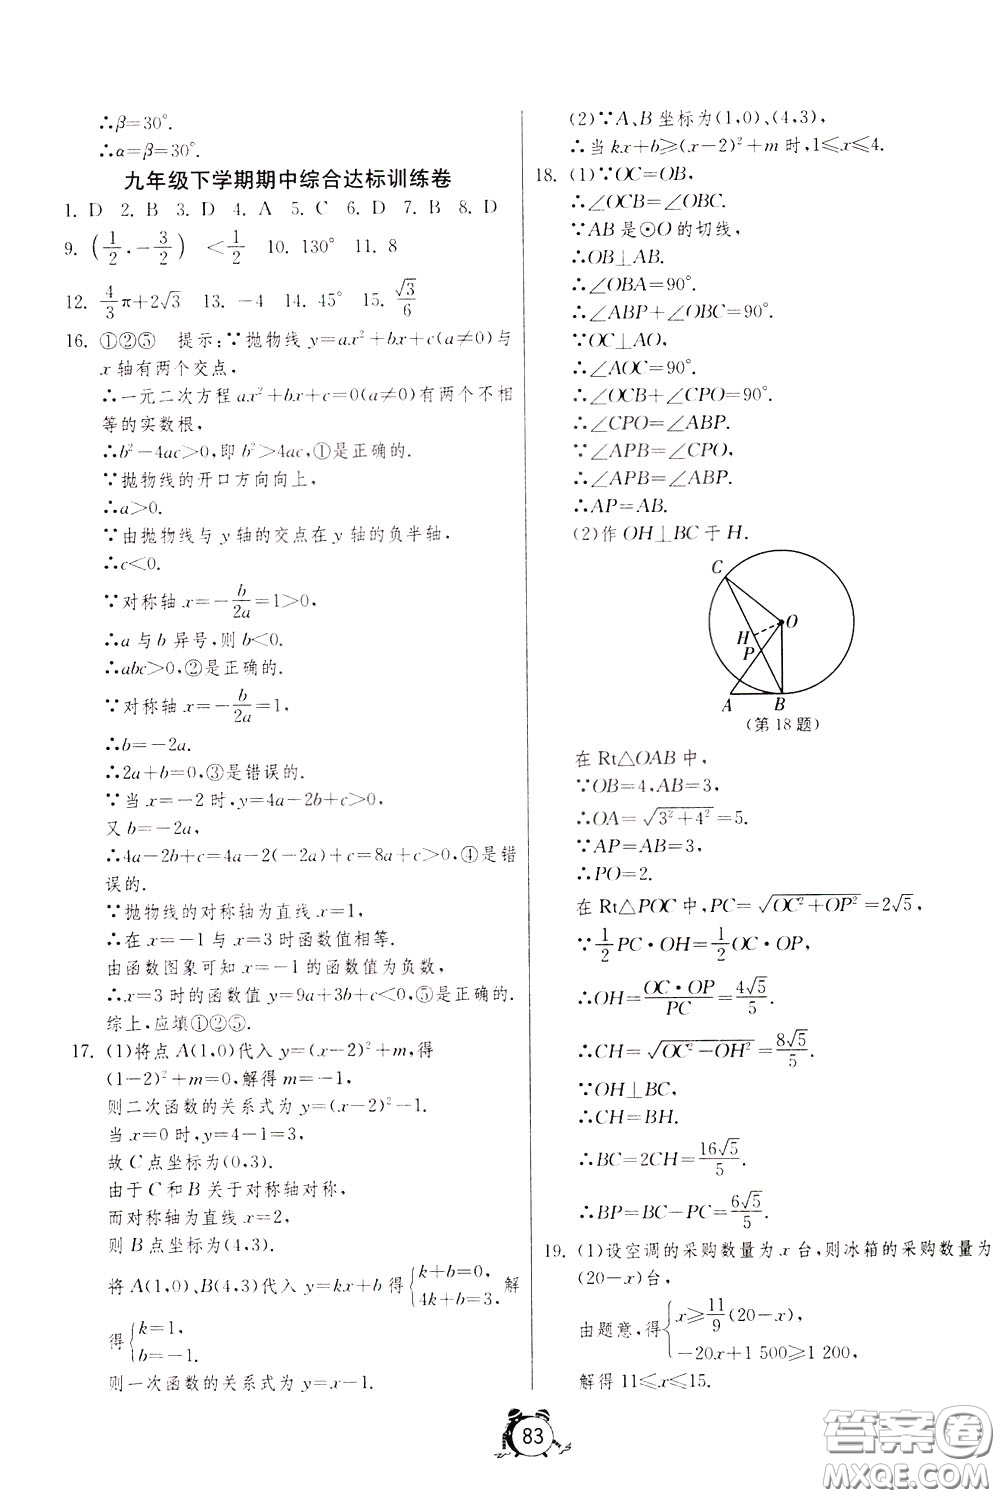 ∴β=30°.
∴α=β=30°.
九年级下学期期中综合达标训练卷
1. D 2. B 3. D 4. A 5. C 6. D 7. B 8. D
9. (1/2, -3/2) <1/2 10. 130° 11. 8
12. 4/3π+2√3 13. -4 14. 45° 15. √3/6
16. ①②⑤ 提示:∵抛物线 y=ax²+bx+c(a≠0)与
x 轴有两个交点,
∴一元二次方程 ax²+bx+c=0(a≠0)有两个不相
等的实数根,
∴b²-4ac>0,即 b²>4ac,①是正确的.
∵抛物线的开口方向向上,
∴a>0.
∵由抛物线与 y 轴的交点在 y 轴的负半轴,
∴c<0.
∵对称轴 x=-b/2a=1>0,
∴a 与 b 异号,则 b<0.
∴abc>0,②是正确的.
∵对称轴 x=-b/2a=1,
∴b=-2a.
∴2a+b=0,③是错误的.
∵当 x=-2 时,y=4a-2b+c>0,
又 b=-2a,
∴4a-2b+c=4a-2(-2a)+c=8a+c>0,④是错
误的.
∵抛物线的对称轴为直线 x=1,
∴在 x=-1 与 x=3 时函数值相等.
由函数图象可知 x=-1 的函数值为负数,
∴x=3 时的函数值 y=9a+3b+c<0,⑤是正确的.
综上,应填①②⑤.
17. (1)将点 A(1,0)代入 y=(x-2)²+m,得
(1-2)²+m=0,解得 m=-1,
则二次函数的关系式为 y=(x-2)²-1.
当 x=0 时,y=4-1=3,
故 C 点坐标为(0,3).
由于 C 和 B 关于对称轴对称,
而对称轴为直线 x=2,
则 B 点坐标为(4,3).
将 A(1,0)、B(4,3)代入 y=kx+b 得{k+b=0, 4k+b=3, 解
得{k=1, b=-1.
则一次函数的关系式为 y=x-1.
(2)∵A、B 坐标为(1,0)、(4,3),
∴当 kx+b≥(x-2)²+m 时,1≤x≤4.
18. (1)∵OC=OB,
∴∠OCB=∠OBC.
∵AB 是⊙O 的切线,
∴OB⊥AB.
∴∠OBA=90°.
∴∠ABP+∠OBC=90°.
∵OC⊥AO,
∴∠AOC=90°.
∴∠OCB+∠CPO=90°.
∴∠CPO=∠ABP.
∵∠APB=∠CPO,
∴∠APB=∠ABP.
∴AP=AB.
(2)作 OH⊥BC 于 H.
C
O
H
P
A B
(第 18 题)
在 Rt△OAB 中,
∵OB=4,AB=3,
∴OA=√(3²+4²)=5.
∵AP=AB=3,
∴PO=2.
在 Rt△POC 中,PC=√(OC²+OP²)=2√5,
∵1/2PC·OH=1/2OC·OP,
∴OH=OC·OP/PC=4√5/5.
∴CH=√(OC²-OH²)=8√5/5.
∵OH⊥BC.
∴CH=BH.
∴BC=2CH=16√5/5.
∴BP=BC-PC=6√5/5.
19. (1)设空调的采购数量为 x 台,则冰箱的采购数量为
(20-x)台,
由题意,得{x≥11/9(20-x), -20x+1 500≥1 200,
解得 11≤x≤15.
83
答案卷
MXQE.COM